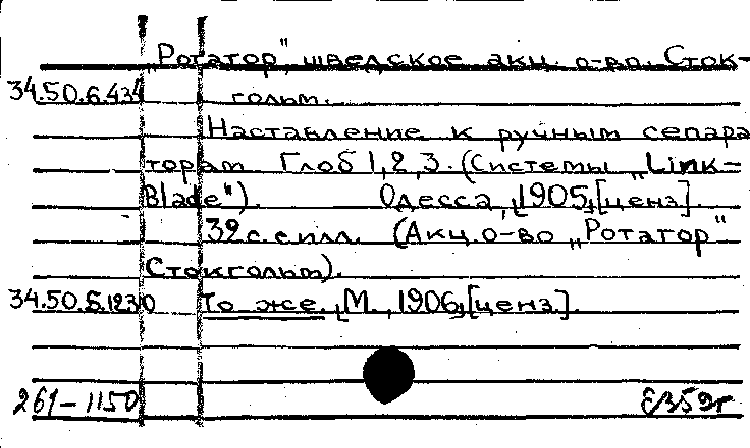 „Ротатор", шведское акц. о-во. Сток-
34.50.6.434 гольм.
Наставление к ручным сепара
торам Глоб 1, 2, 3. (Системы „Link-
Blade"). Одесса, [1905, [ценз].
32 с. с илл. (Акц. о-во „Ротатор"
Стокгольм).
34.50.5.1230 То же. [М., 1906, [ценз].
261-1150